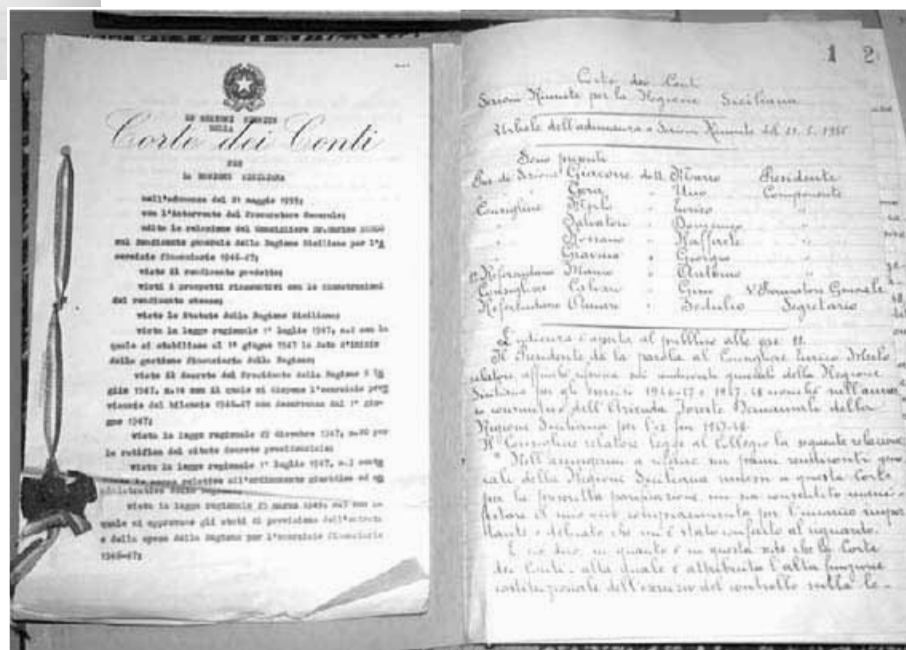 LE SEZIONI RIUNITE
DELLA
Corte dei Conti
PER
LA REGIONE SICILIANA
nell'adunanza del 21 maggio 1955;
con l'intervento del Procuratore Generale;
udito la relazione del Consigliere Dr. Enrico
sul rendiconto generale della Regione Siciliana per l'e
sercizio finanziario 1946-47;
visto il rendiconto predetto;
visti i prospetti riassuntivi con le
del rendiconto stesso;
visto lo Statuto della Regione Siciliana;
vista la legge regionale 1° luglio 1947, n.2 con la
quale si stabilisce al 1° giugno 1947 la data d'inizio
della gestione finanziaria della Regione;
visto il decreto del Presidente della Regione 5 lu
glio 1947, n.16 con il quale si dispone l'esercizio prov
visorio del bilancio 1946-47 con decorrenza dal 1° giu-
gno 1947;
vista la legge regionale 29 dicembre 1947, n.20 per
la ratifica del citato decreto presidenziale;
vista la legge regionale 1° luglio 1947, n.3
norme relative all'ordinamento giuridico ed am
ministrativo della Regione;
vista la legge regionale 25 marzo con la
quale si approvano gli stati di previsione dell'entrata
e della spesa della Regione per l'esercizio finanziario
1946-47;
1 2
Corte dei Conti
Sezioni Riunite per la Regione Siciliana
Verbale dell'adunanza a Sezioni Riunite del 21.5.1955
Sono presenti
Pres. di Sezione Giaccone dott. Mauro Presidente
" " Uno Componente
Consigliere Merlo " Enrico "
" Salvatori " Domenico "
" Rossano " Raffaele "
" Gravina " Giorgio "
1° Referendario Mauro " Antonio "
Consigliere " Gino V. Procuratore Generale
Referendario " Sedulio Segretario
L'udienza è aperta al pubblico alle ore 11.
Il Presidente dà la parola al Consigliere Enrico Merlo
relatore, affinché riferisca sul rendiconto generale della Regione
Siciliana per gli esercizi 1946-47 e 1947-48 nonché sull'annes
so consuntivo dell'Azienda Foreste Demaniali della
Regione Siciliana per l'es. fin. 1947-48.
Il Consigliere relatore legge al Collegio la seguente relazione:
" Nell'accingermi a riferire sui primi rendiconti gene
rali della Regione Siciliana a questa Corte
per la prescritta parificazione, mi sia consentito mani
festare il mio vivo compiacimento per l'incarico impor
tante e delicato che mi è stato conferito al riguardo.
E ciò dico, in quanto è in questa sede che la Corte
dei Conti, alla quale è attribuita l'alta funzione
costituzionale dell'esercizio del controllo sulla le-